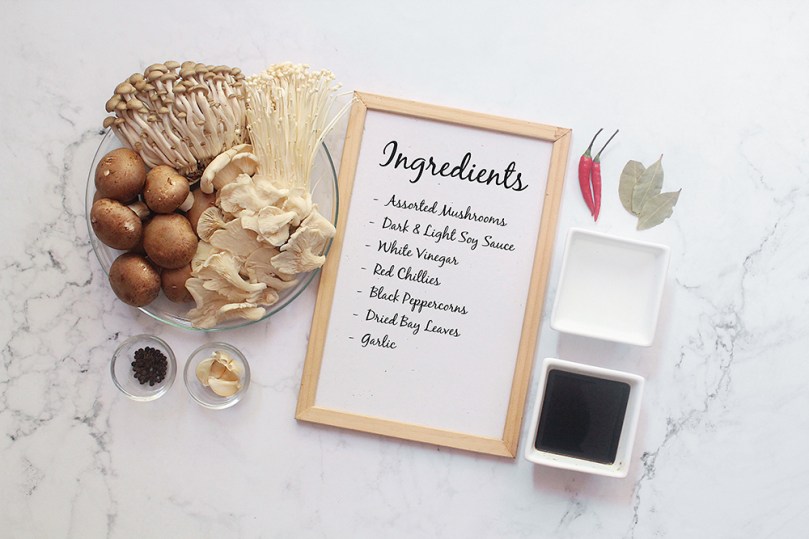 Ingredients
- Assorted Mushrooms
- Dark & Light Soy Sauce
- White Vinegar
- Red Chillies
- Black Peppercorns
- Dried Bay Leaves
- Garlic